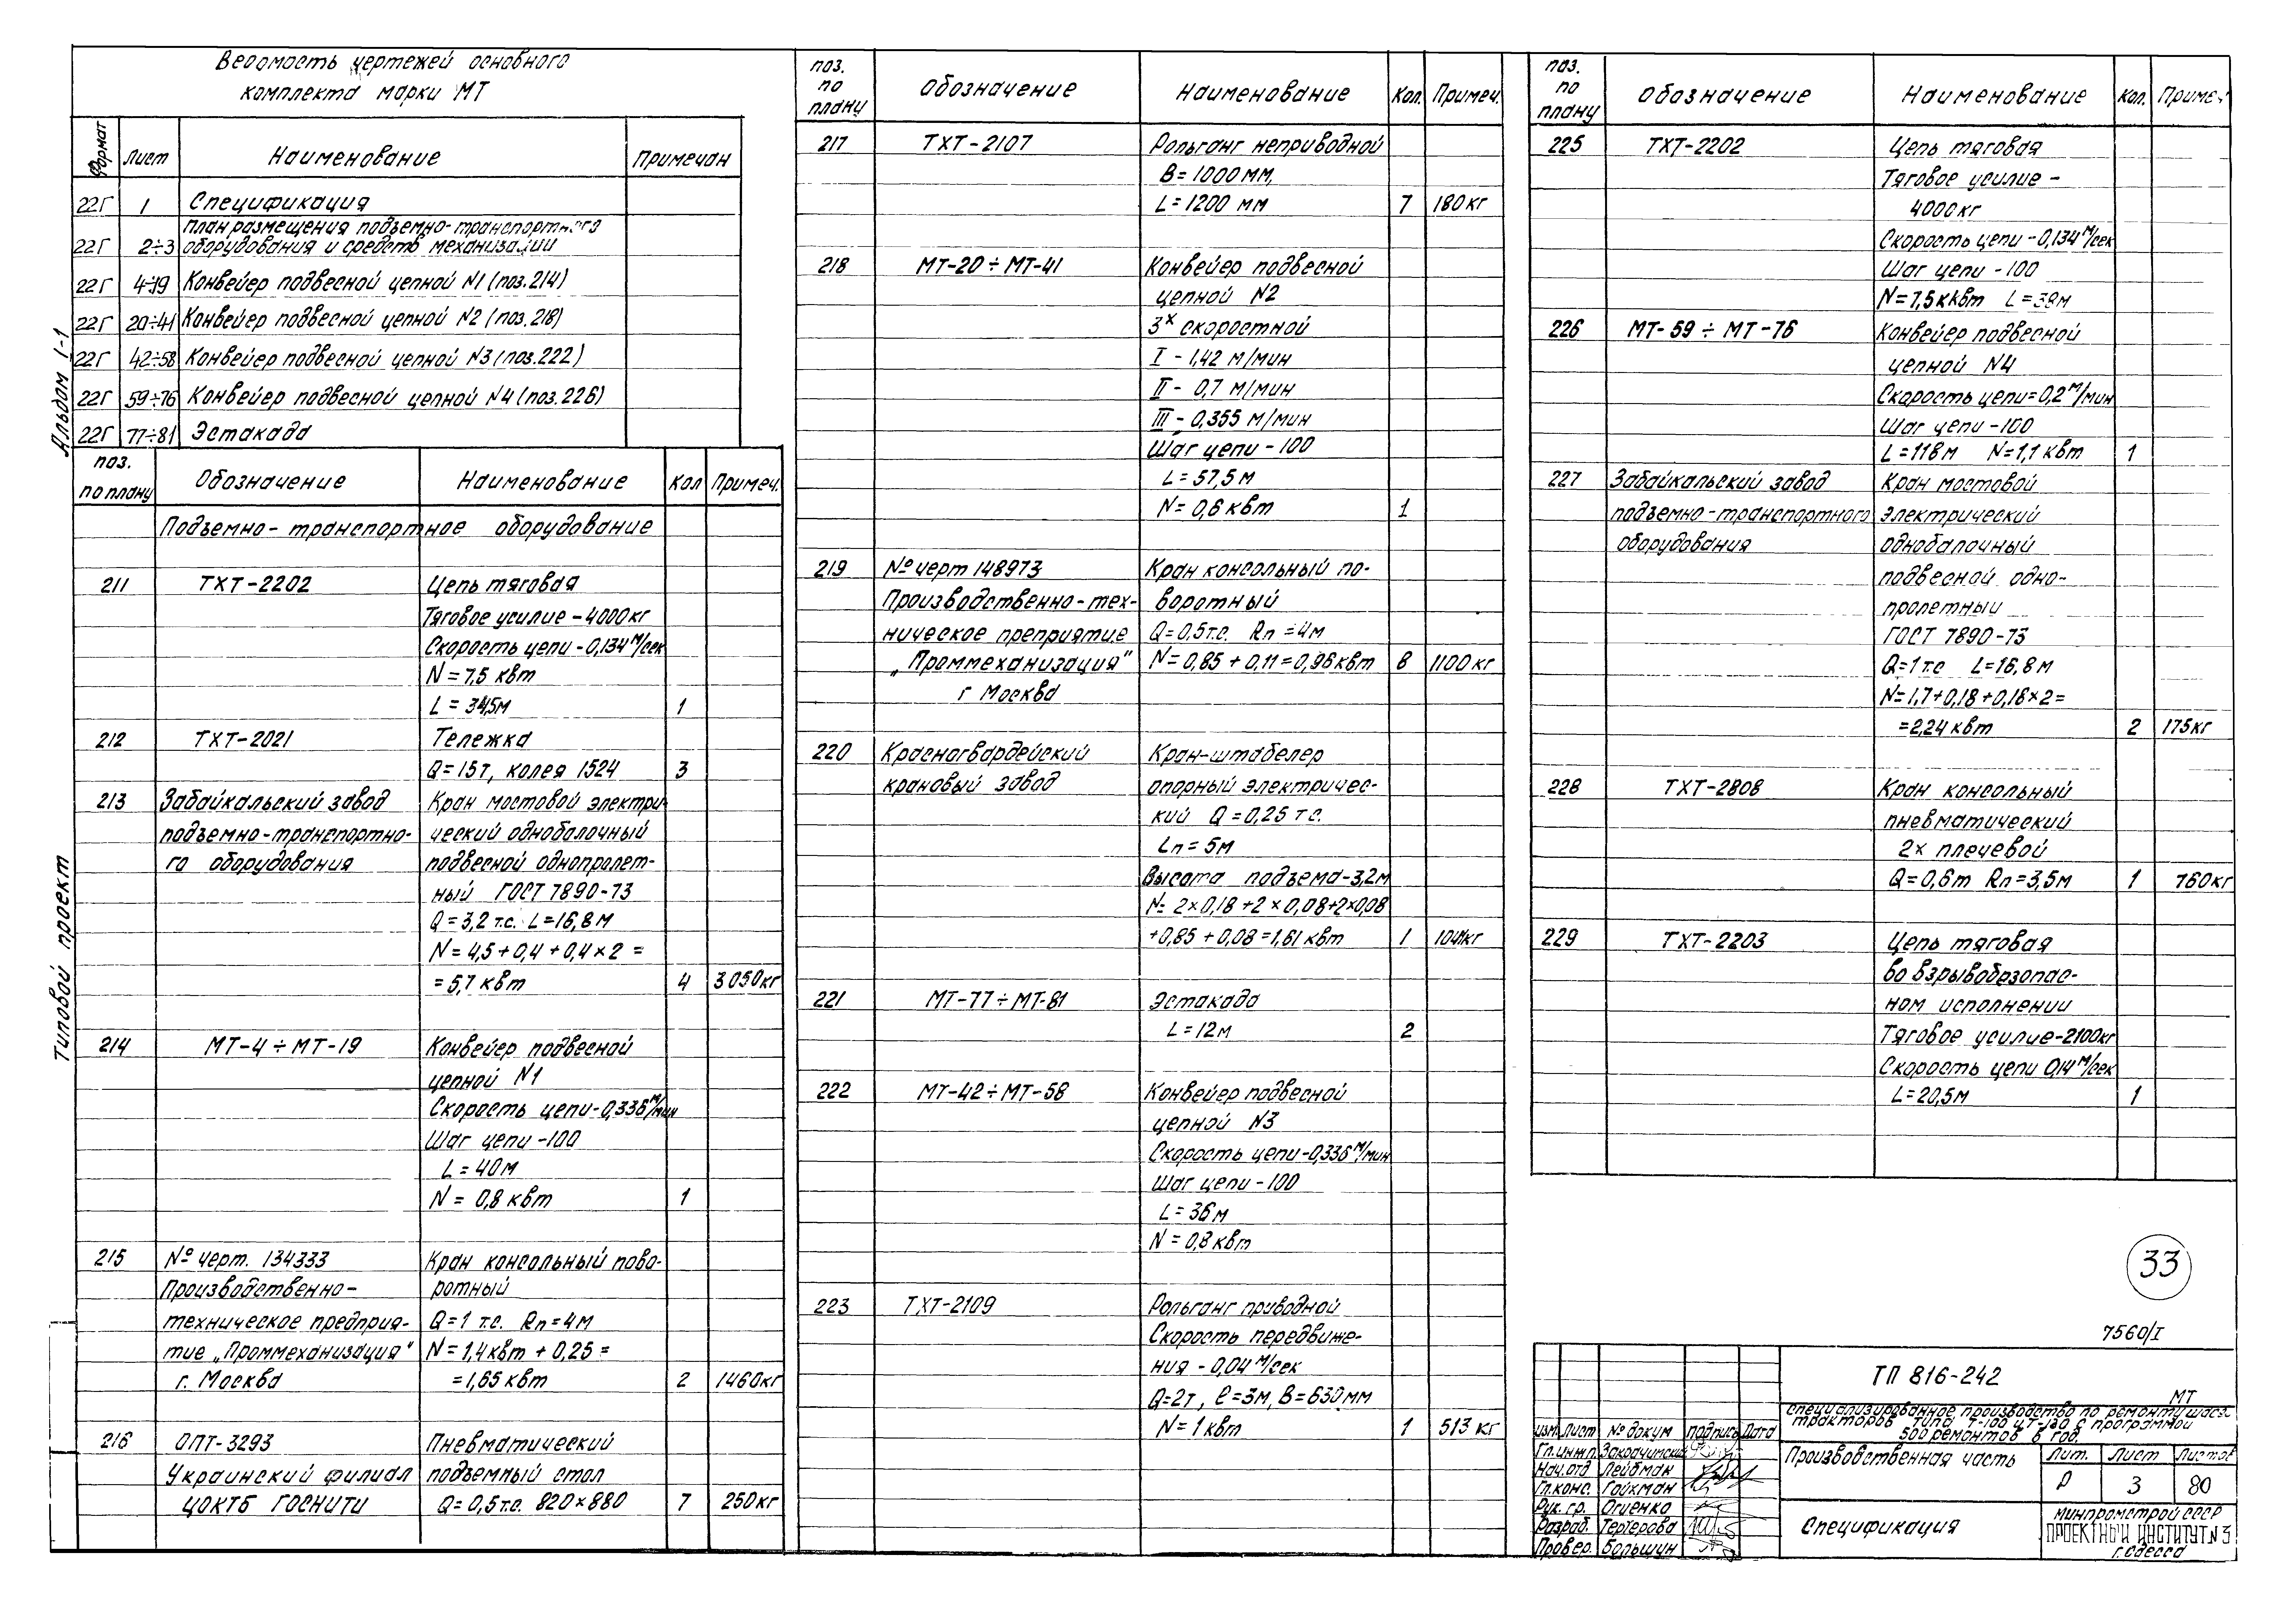 Альбом 1-1
Типовой проект
Ведомость чертежей основного
комплекта марки МТ
Формат Лист Наименование Примечан
22Г 1 Спецификация
План размещения подъемно-транспортного
22Г 2÷3 оборудования и средств механизации
22Г 4÷19 Конвейер подвесной цепной N1 (поз.214)
22Г 20÷41 Конвейер подвесной цепной N2 (поз.218)
22Г 42÷58 Конвейер подвесной цепной N3 (поз.222)
22Г 59÷76 Конвейер подвесной цепной N4 (поз.226)
22Г 77÷81 Эстакада
поз.
по плану Обозначение Наименование Кол Примеч.
Подъемно-транспортное оборудование
211 ТХТ-2202 Цепь тяговая
Тяговое усилие-4000кг
Скорость цепи-0,134 м/сек
N=7,5 квт
L=34,5м 1
212 ТХТ-2021 Тележка
Q=15т, колея 1524 3
213 Забайкальский завод Кран мостовой электри-
подъемно-транспортно- ческий однобалочный
го оборудования подвесной однопролет-
ный ГОСТ 7890-73
Q=3,2 т.с. L=16,8м
N=4,5+0,4+0,4×2=
=5,7 квт 4 3050кг
214 МТ-4÷МТ-19 Конвейер подвесной
цепной N1
Скорость цепи-0,336 м/мин
Шаг цепи-100
L=40м
N=0,8 квт 1
215 № черт. 134333 Кран консольный пово-
Производственно- ротный
техническое предприя- Q=1 т.с. Rп=4м
тие „Проммеханизация" N=1,4квт+0,25=
г. Москва =1,65квт 2 1460кг
216 ОПТ-3293 Пневматический
Украинский филиал подъемный стол
ЦОКТБ ГОСНИТИ Q=0,5т.с. 820×880 7 250кг
поз.
по
плану Обозначение Наименование Кол. Примеч.
217 ТХТ-2107 Рольганг неприводной
В=1000мм,
L=1200 мм 7 180кг
218 МТ-20÷МТ-41 Конвейер подвесной
цепной N2
3х скоростной
I - 1,42 м/мин
II - 0,7 м/мин
III - 0,355 м/мин
Шаг цепи-100
L=57,5м
N=0,6 квт 1
219 № черт 148973 Кран консольный по-
Производственно-тех- воротный
ническое преприятие Q=0,5т.с. Rп=4м
„Проммеханизация" N=0,85+0,11=0,96квт 8 1100кг
г Москва
220 Красногвардейский Кран-штабелер
крановый завод опорный электричес-
кий Q=0,25 т с.
Lп=5м
Высота подъема-3,2м
N=2×0,18+2×0,08+2×0,08
+0,85+0,08=1,61 квт 1 1041кг
221 МТ-77÷МТ-81 Эстакада
L=12м 2
222 МТ-42÷МТ-58 Конвейер подвесной
цепной N3
Скорость цепи-0,336 м/мин
Шаг цепи-100
L=36м
N=0,8квт
223 ТХТ-2109 Рольганг приводной
Скорость передвиже-
ния-0,04 м/сек
Q=2т, ℓ=3м, В=630мм
N=1 квт 1 513 кг
поз.
по
плану Обозначение Наименование Кол. Примеч
225 ТХТ-2202 Цепь тяговая
Тяговое усилие-
4000кг
Скорость цепи-0,134 м/сек
Шаг цепи-100
N=7,5кквт L=38м
226 МТ-59÷МТ-76 Конвейер подвесной
цепной N4
Скорость цепи=0,2 м/мин
Шаг цепи-100
L=118м N=1,1 квт 1
227 Забайкальский завод Кран мостовой
подъемно-транспортного электрический
оборудования однобалочный
подвесной одно-
пролетный
ГОСТ 7890-73
Q=1т.с L=16,8м
N=1,7+0,18+0,18×2=
=2,24 квт 2 175кг
228 ТХТ-2808 Кран консольный
пневматический
2х плечевой
Q=0,6т Rп=3,5м 1 760кг
229 ТХТ-2203 Цепь тяговая
во взрывобезопас-
ном исполнении
Тяговое усилие-2100кг
Скорость цепи 0,14 м/сек
L=20,5м 1
33
7560/I
ТП 816-242
МТ
специализированное производство по ремонту шасси
тракторов типа Т-100 и Т-130 с программой
500 ремонтов в год.
изм. Лист № докум подпись Дата
Гл.инж.п.
Нач.отд Лейбман
Гл.конс. Гойхман
Рук. гр. Огиенко
Разраб. Тертерова
Провер. Большун
Производственная часть
Лит. Лист Листов
Р 3 80
Спецификация
Минпромстрой СССР
ПРОЕКТНЫЙ ИНСТИТУТ N3
г. Одесса